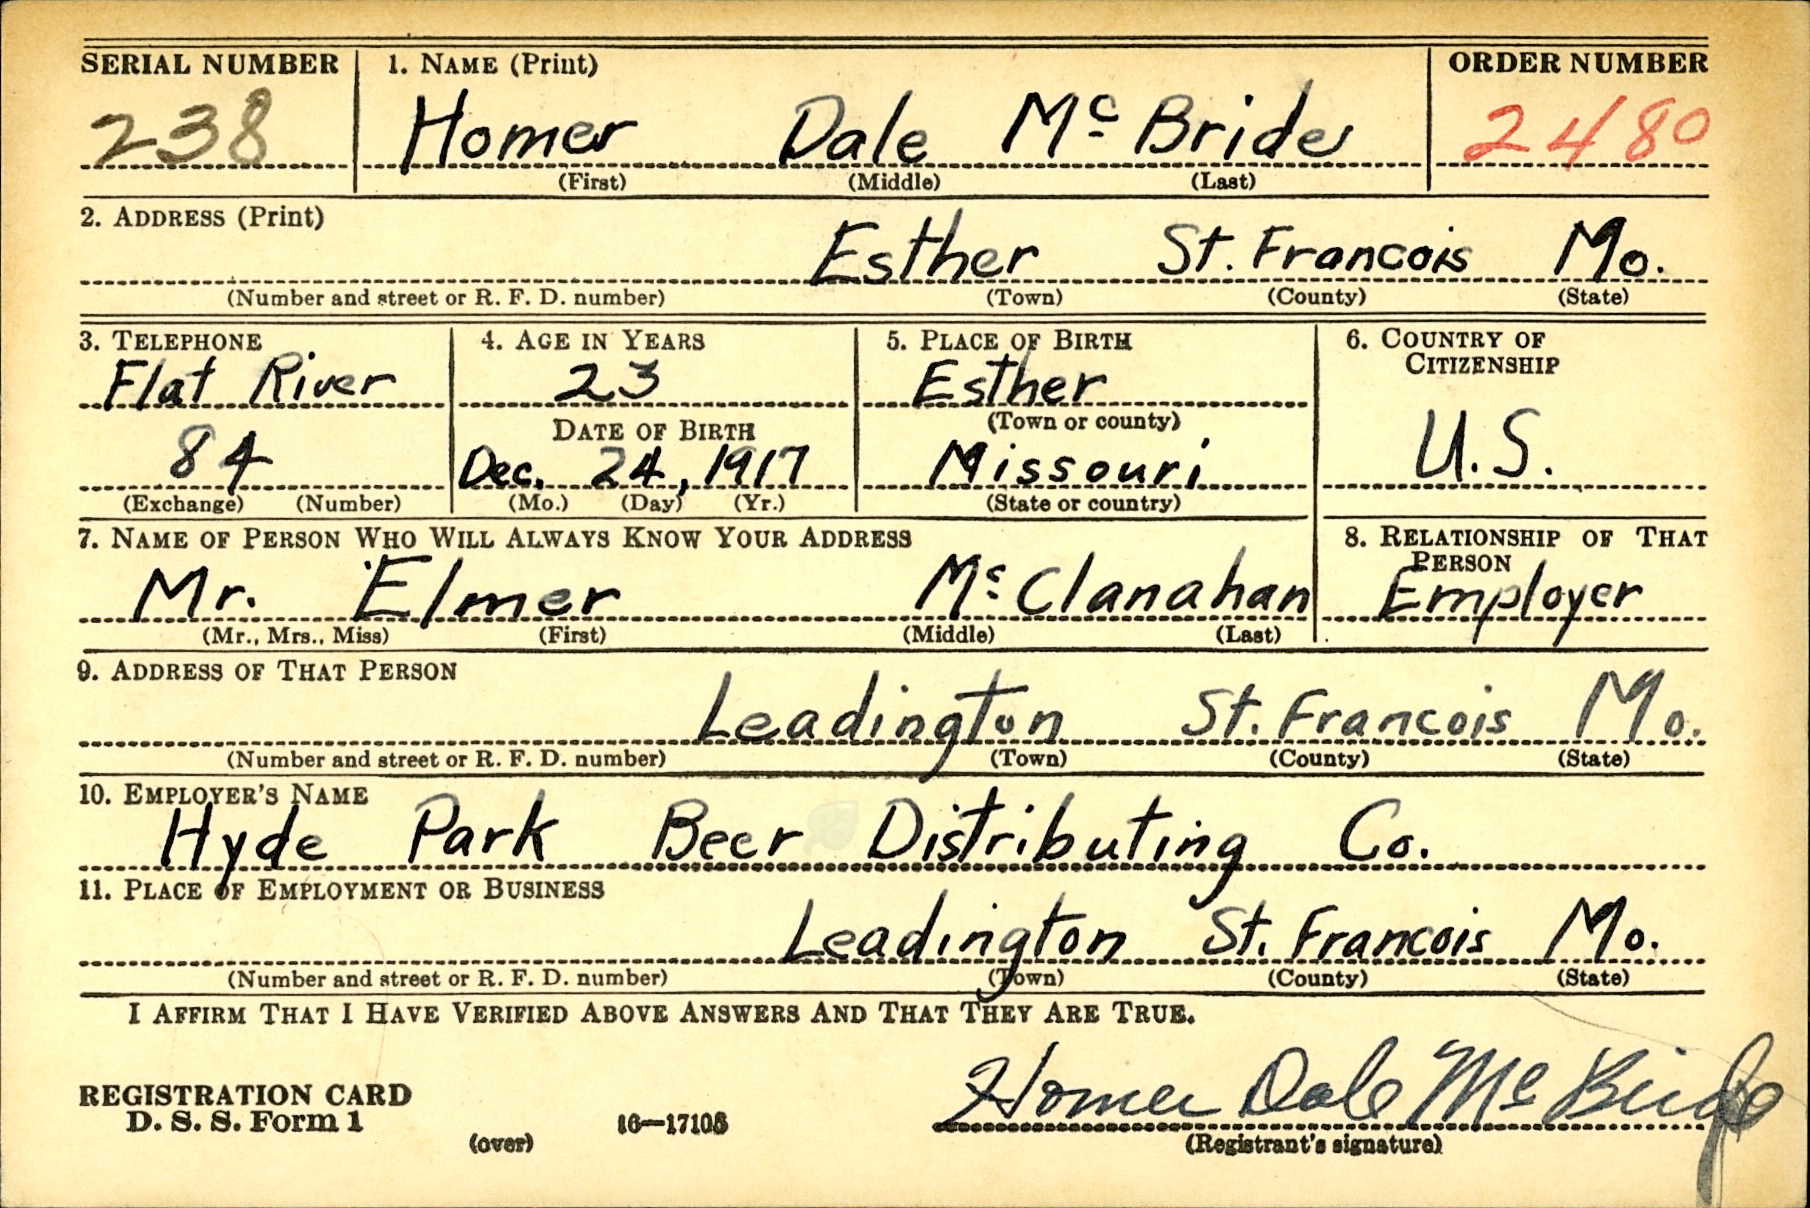 SERIAL NUMBER 1. NAME (Print) ORDER NUMBER
238 Homer Dale McBride 2480
(First) (Middle) (Last)
2. ADDRESS (Print)
Esther St. Francois Mo.
(Number and street or R. F. D. number) (Town) (County) (State)
3. TELEPHONE 4. AGE IN YEARS 5. PLACE OF BIRTH 6. COUNTRY OF CITIZENSHIP
Flat River 23 Esther
DATE OF BIRTH (Town or county)
84 Dec. 24, 1917 Missouri U.S.
(Exchange) (Number) (Mo.) (Day) (Yr.) (State or country)
7. NAME OF PERSON WHO WILL ALWAYS KNOW YOUR ADDRESS 8. RELATIONSHIP OF THAT PERSON
Mr. Elmer McClanahan Employer
(Mr., Mrs., Miss) (First) (Middle) (Last)
9. ADDRESS OF THAT PERSON
Leadington St. Francois Mo.
(Number and street or R. F. D. number) (Town) (County) (State)
10. EMPLOYER'S NAME
Hyde Park Beer Distributing Co.
11. PLACE OF EMPLOYMENT OR BUSINESS
Leadington St. Francois Mo.
(Number and street or R. F. D. number) (Town) (County) (State)
I AFFIRM THAT I HAVE VERIFIED ABOVE ANSWERS AND THAT THEY ARE TRUE.
REGISTRATION CARD Homer Dale McBride
D. S. S. Form 1 (over) 16—17105 (Registrant's signature)